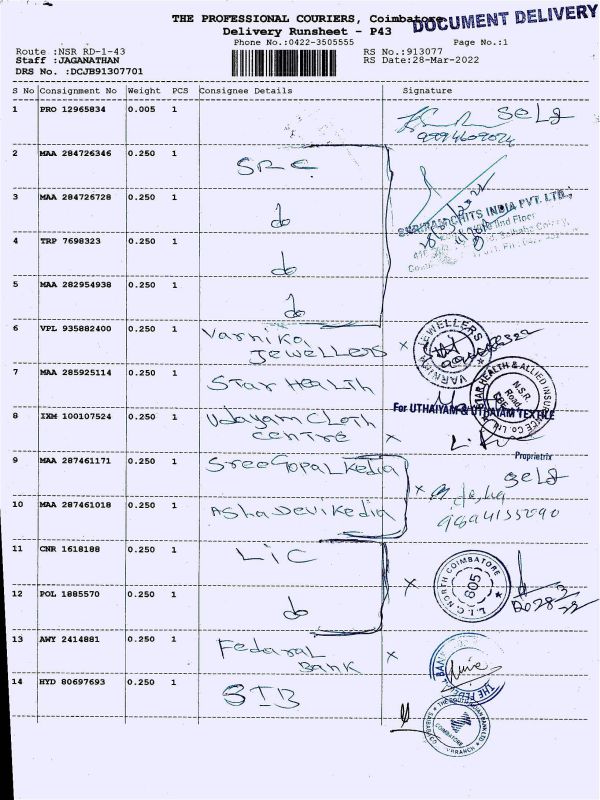 THE PROFESSIONAL COURIERS, Coimbatore
DOCUMENT DELIVERY
Delivery Runsheet - P43
Phone No.:0422-3505555 Page No.:1
Route :NSR RD-1-43 RS No.:913077
Staff :JAGANATHAN RS Date:28-Mar-2022
DRS No. :DCJB91307701
S No Consignment No Weight PCS Consignee Details Signature
1 PRO 12965834 0.005 1 Self
2 MAA 284726346 0.250 1 SRC
3 MAA 284726728 0.250 1 do
SHRIRAM CHITS INDIA PVT. LTD.,
IInd Floor
4 TRP 7698323 0.250 1 do
5 MAA 282954938 0.250 1 do
6 VPL 935882400 0.250 1 Varnika
Jewellers x
JEWELLERS
7 MAA 285925114 0.250 1 Star Health
STAR HEALTH & ALLIED INSURANCE Co. Ltd.
N.S.R. Road
For UTHAIYAM & UTHAYAM TEXTILE
8 IXM 100107524 0.250 1 Udayam Cloth
Centre x
Proprietrix
9 MAA 287461171 0.250 1 Sree Gopal Kedia Self
10 MAA 287461018 0.250 1 Asha Devi Kedia x
11 CNR 1618188 0.250 1 LIC
NORTH COIMBATORE
605
L.I.C.
12 POL 1885570 0.250 1 do x
13 AWY 2414881 0.250 1 Federal
Bank x
THE FEDE
BANK
14 HYD 80697693 0.250 1 SIB
THE SOUTH INDIAN BANK LTD
COIMBATORE
BRANCH